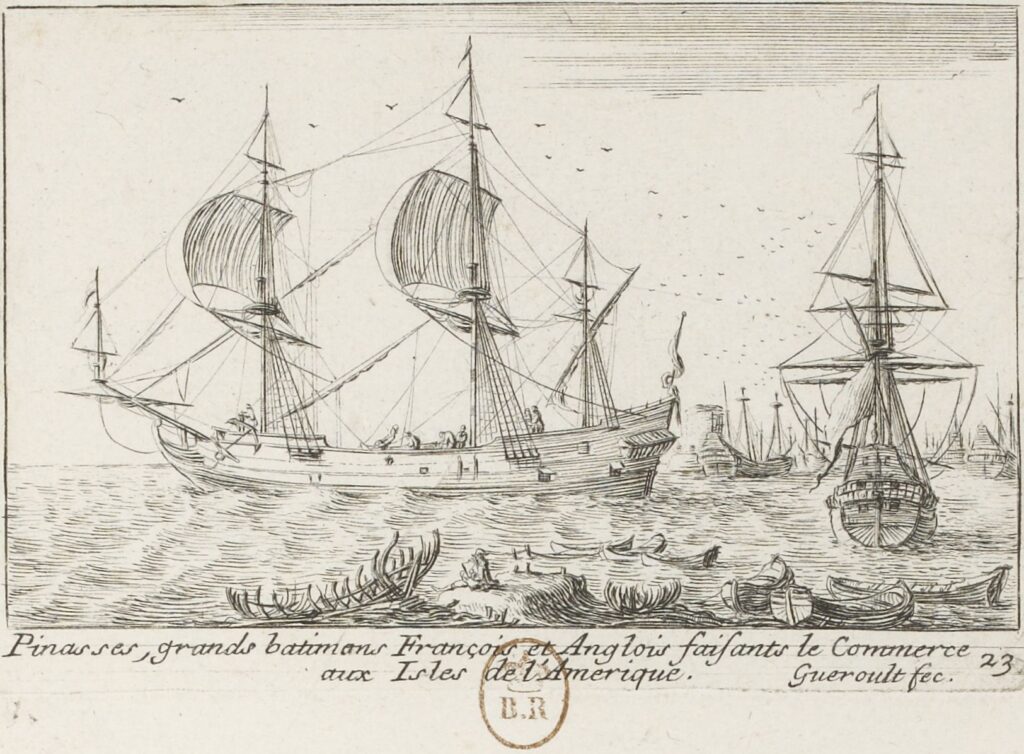 Pinasses, grands batimans François et Anglois faisants le Commerce
aux Isles de l'Amerique.
Gueroult fec.
23
B.R